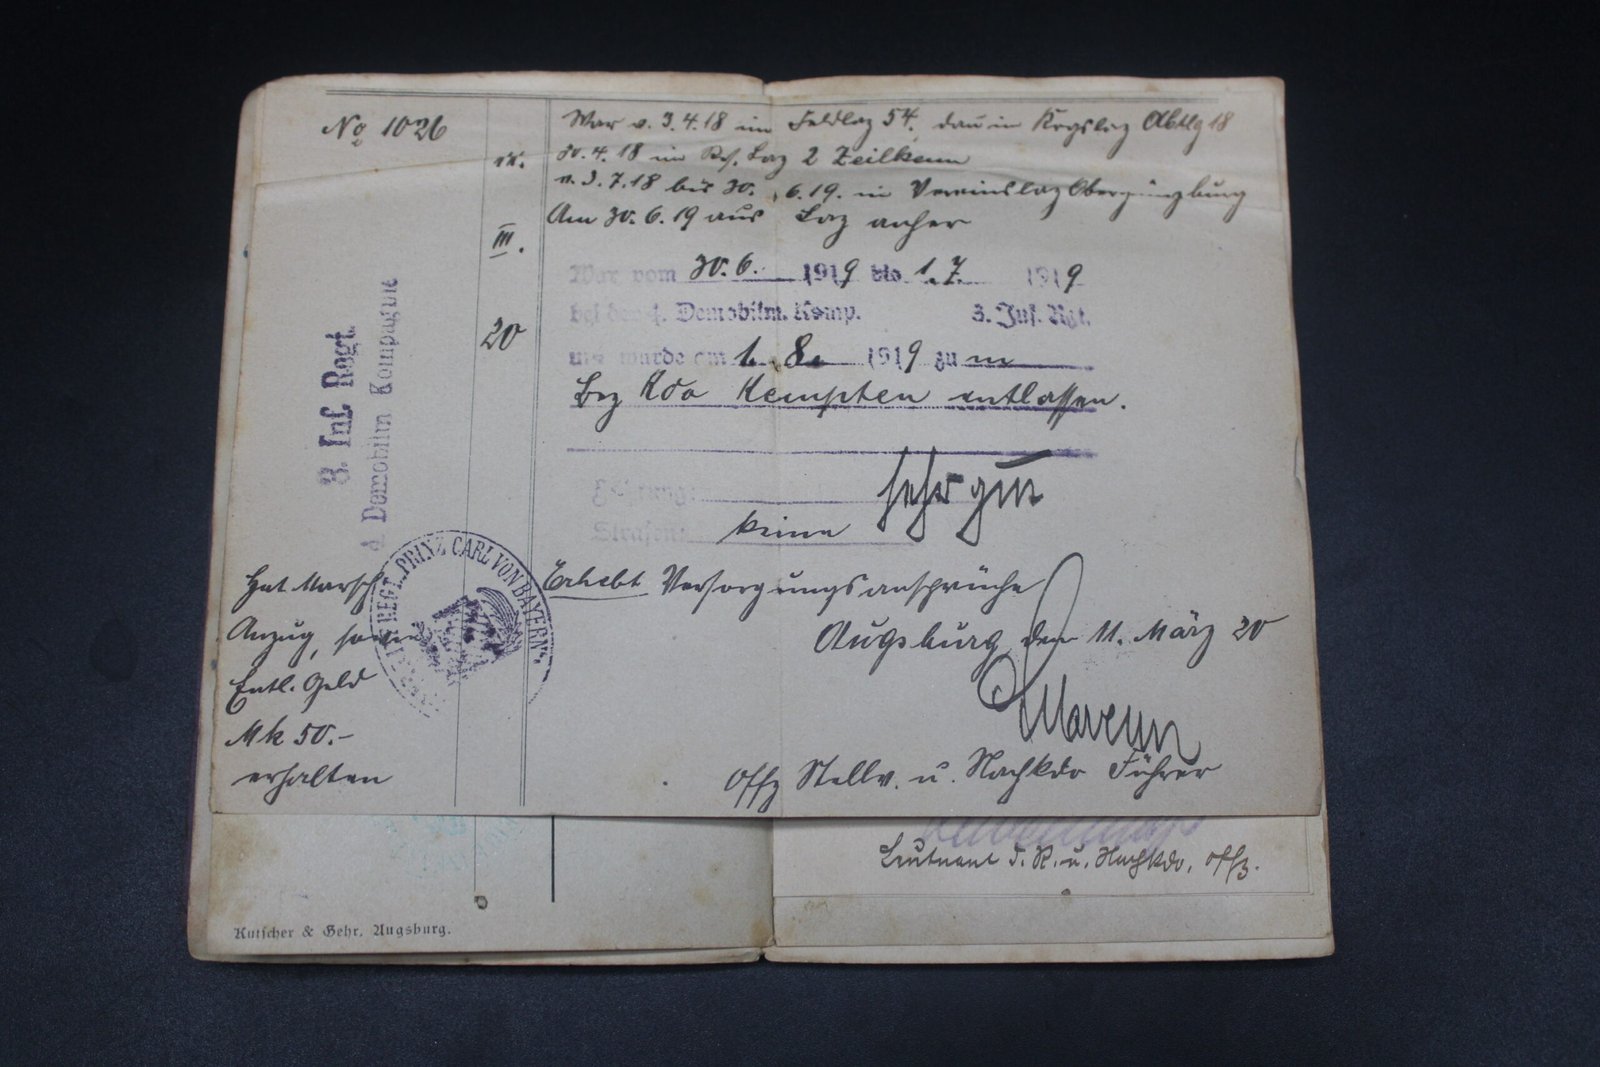 No 1026
War v. 3.4.18 im Feldlaz 54. dan in Krgslaz Abtlg 18
30.4.18 im Res. Laz 2
v. 3.7.18 bis 30. 6.19. in Vereinslaz Obergünzburg
Am 30.6.19 aus Laz anher
III.
20
War vom 30.6. 1919 bis 1.7. 1919
bei der Demobilm. Komp. 3. Inf. Rgt.
und wurde am 1. 8. 1919 zu m
Bez Kdo Kempten entlassen.
Führung: sehr gut
Strafen: keine
3. Inf. Regt.
Demobilm Kompagnie
REGT. PRINZ CARL VON BAYERN
Hat Marsch
Anzug, sowie
Entl. Geld
Mk 50.-
erhalten
Erhebt Versorgungsansprüche
Augsburg, den 11. März 20
Offz Stellv. u. Nachkdo Führer
Leutnant d. R. u. Nachkdo. Offz.
Kutscher & Gehr, Augsburg.